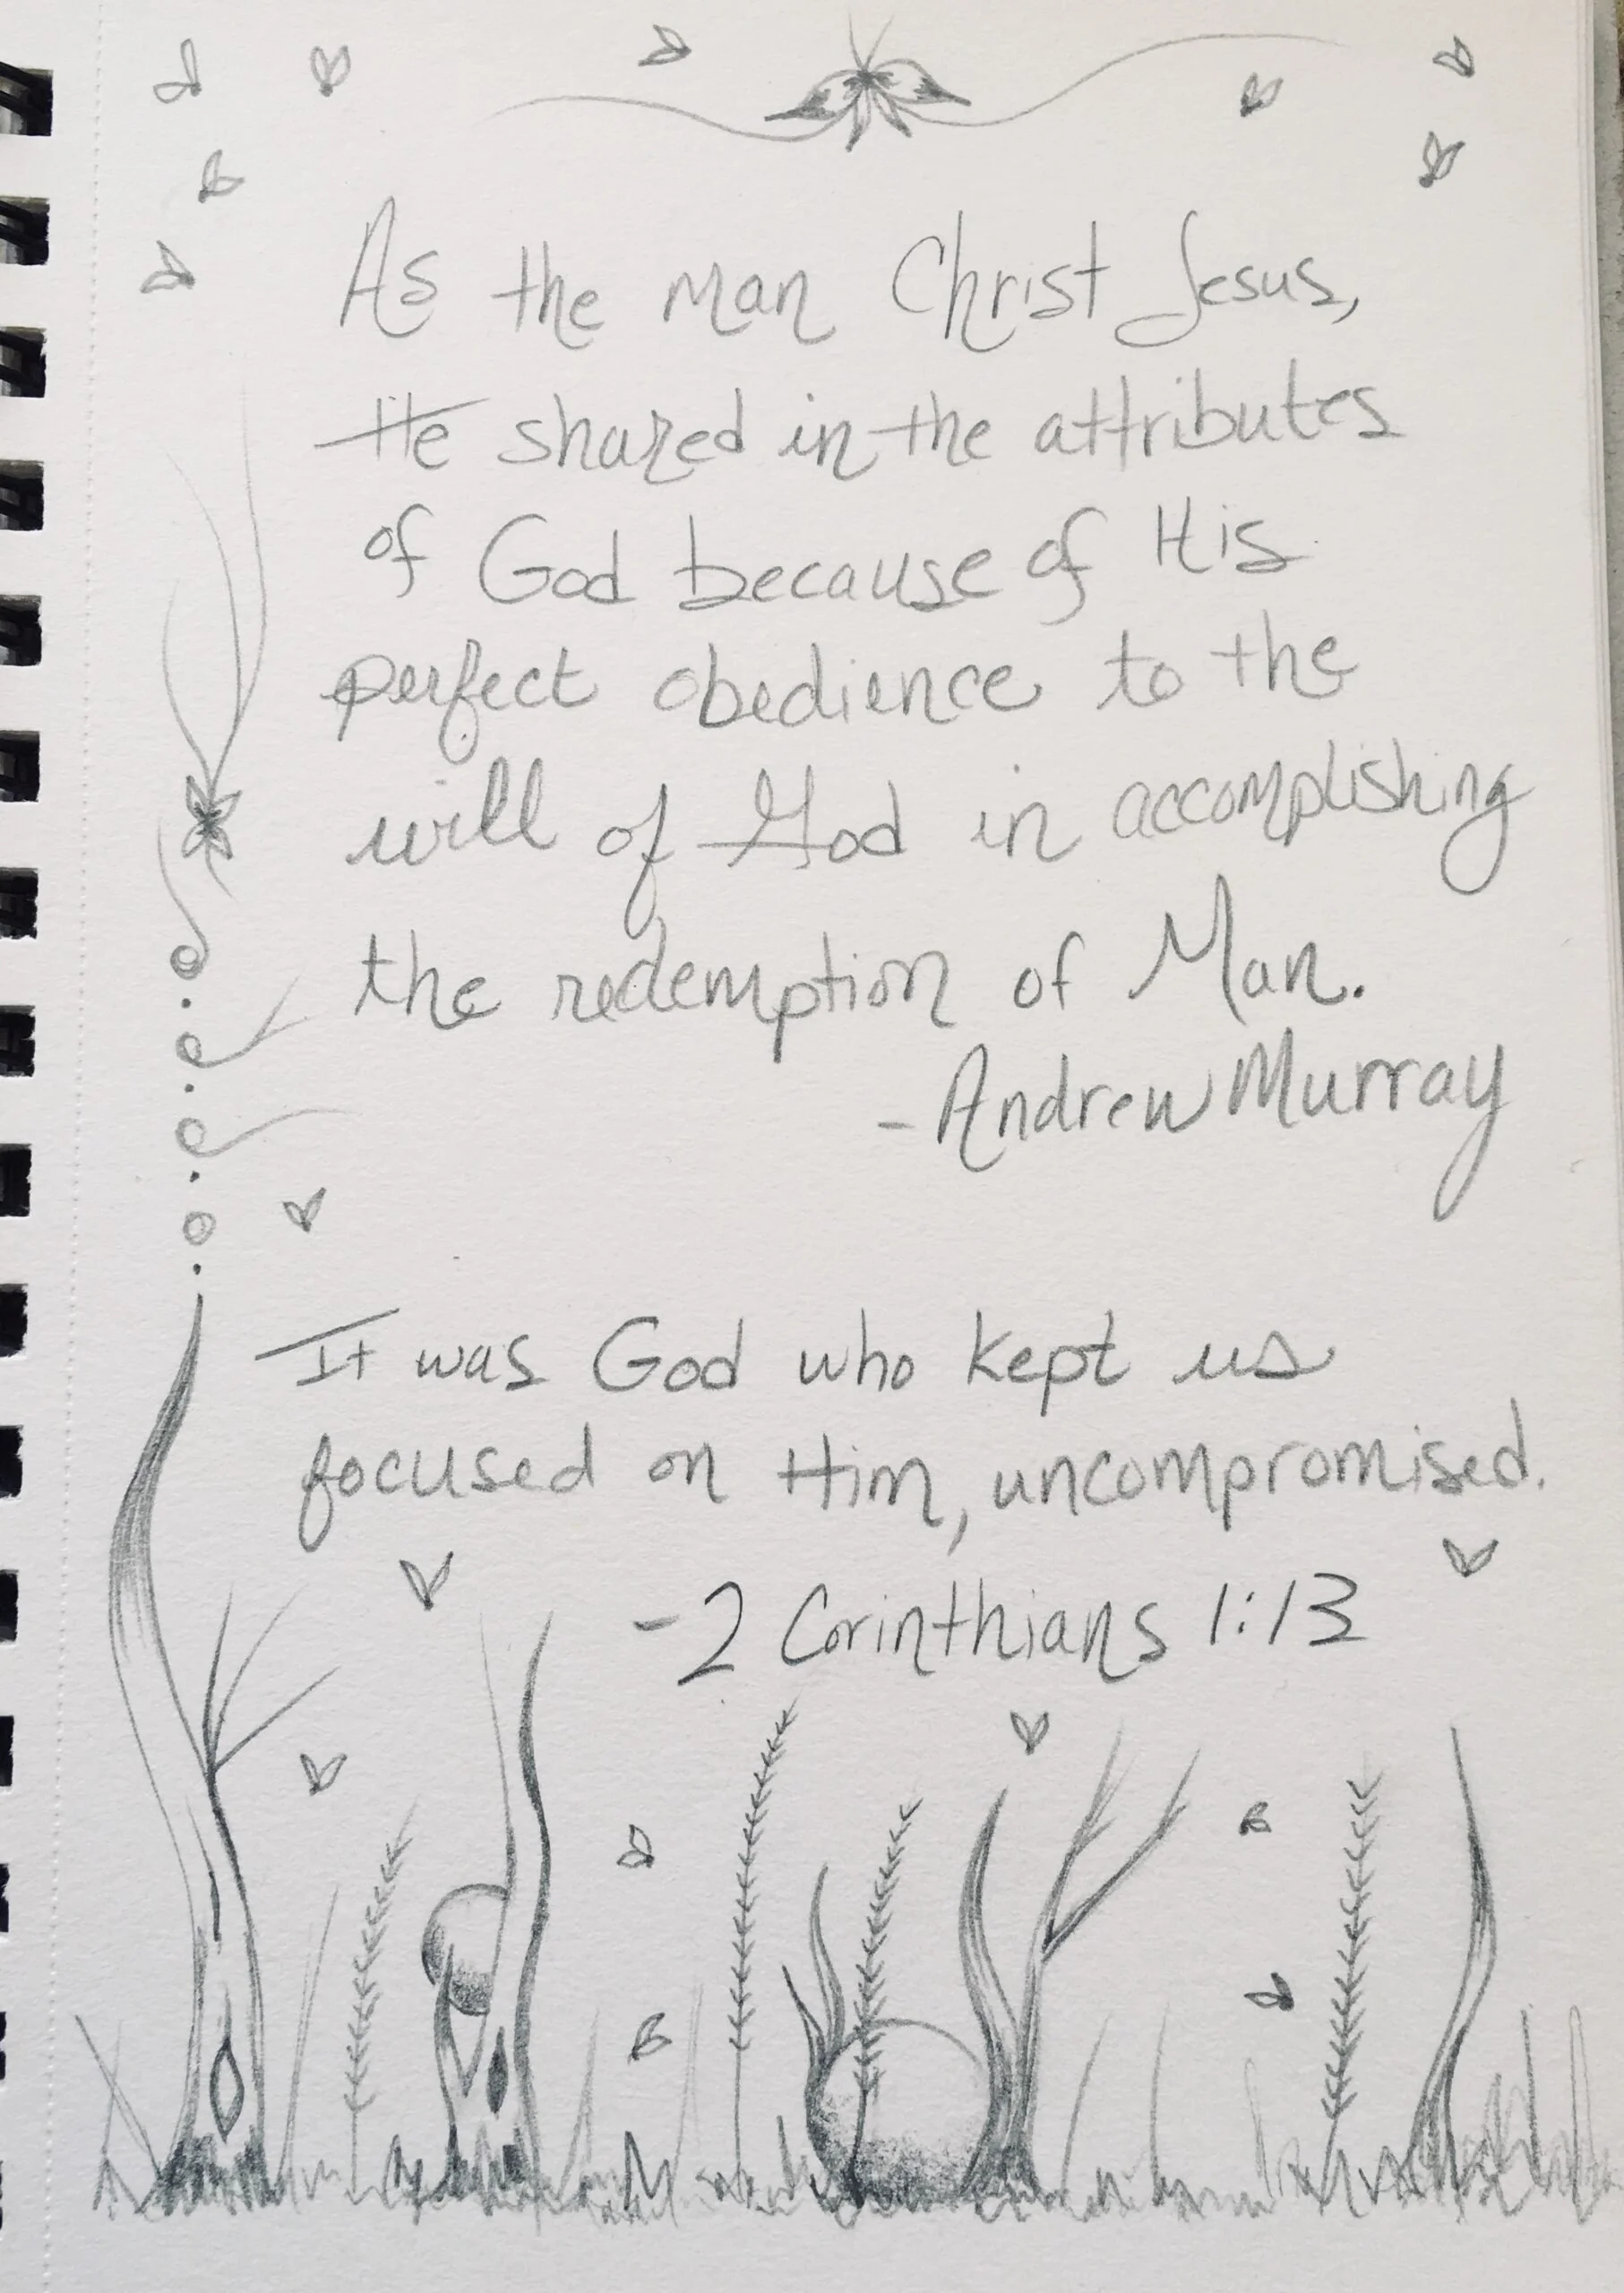 As the man Christ Jesus,
He shared in the attributes
of God because of His
perfect obedience to the
will of God in accomplishing
the redemption of Man.
- Andrew Murray
It was God who kept us
focused on Him, uncompromised.
- 2 Corinthians 1:13